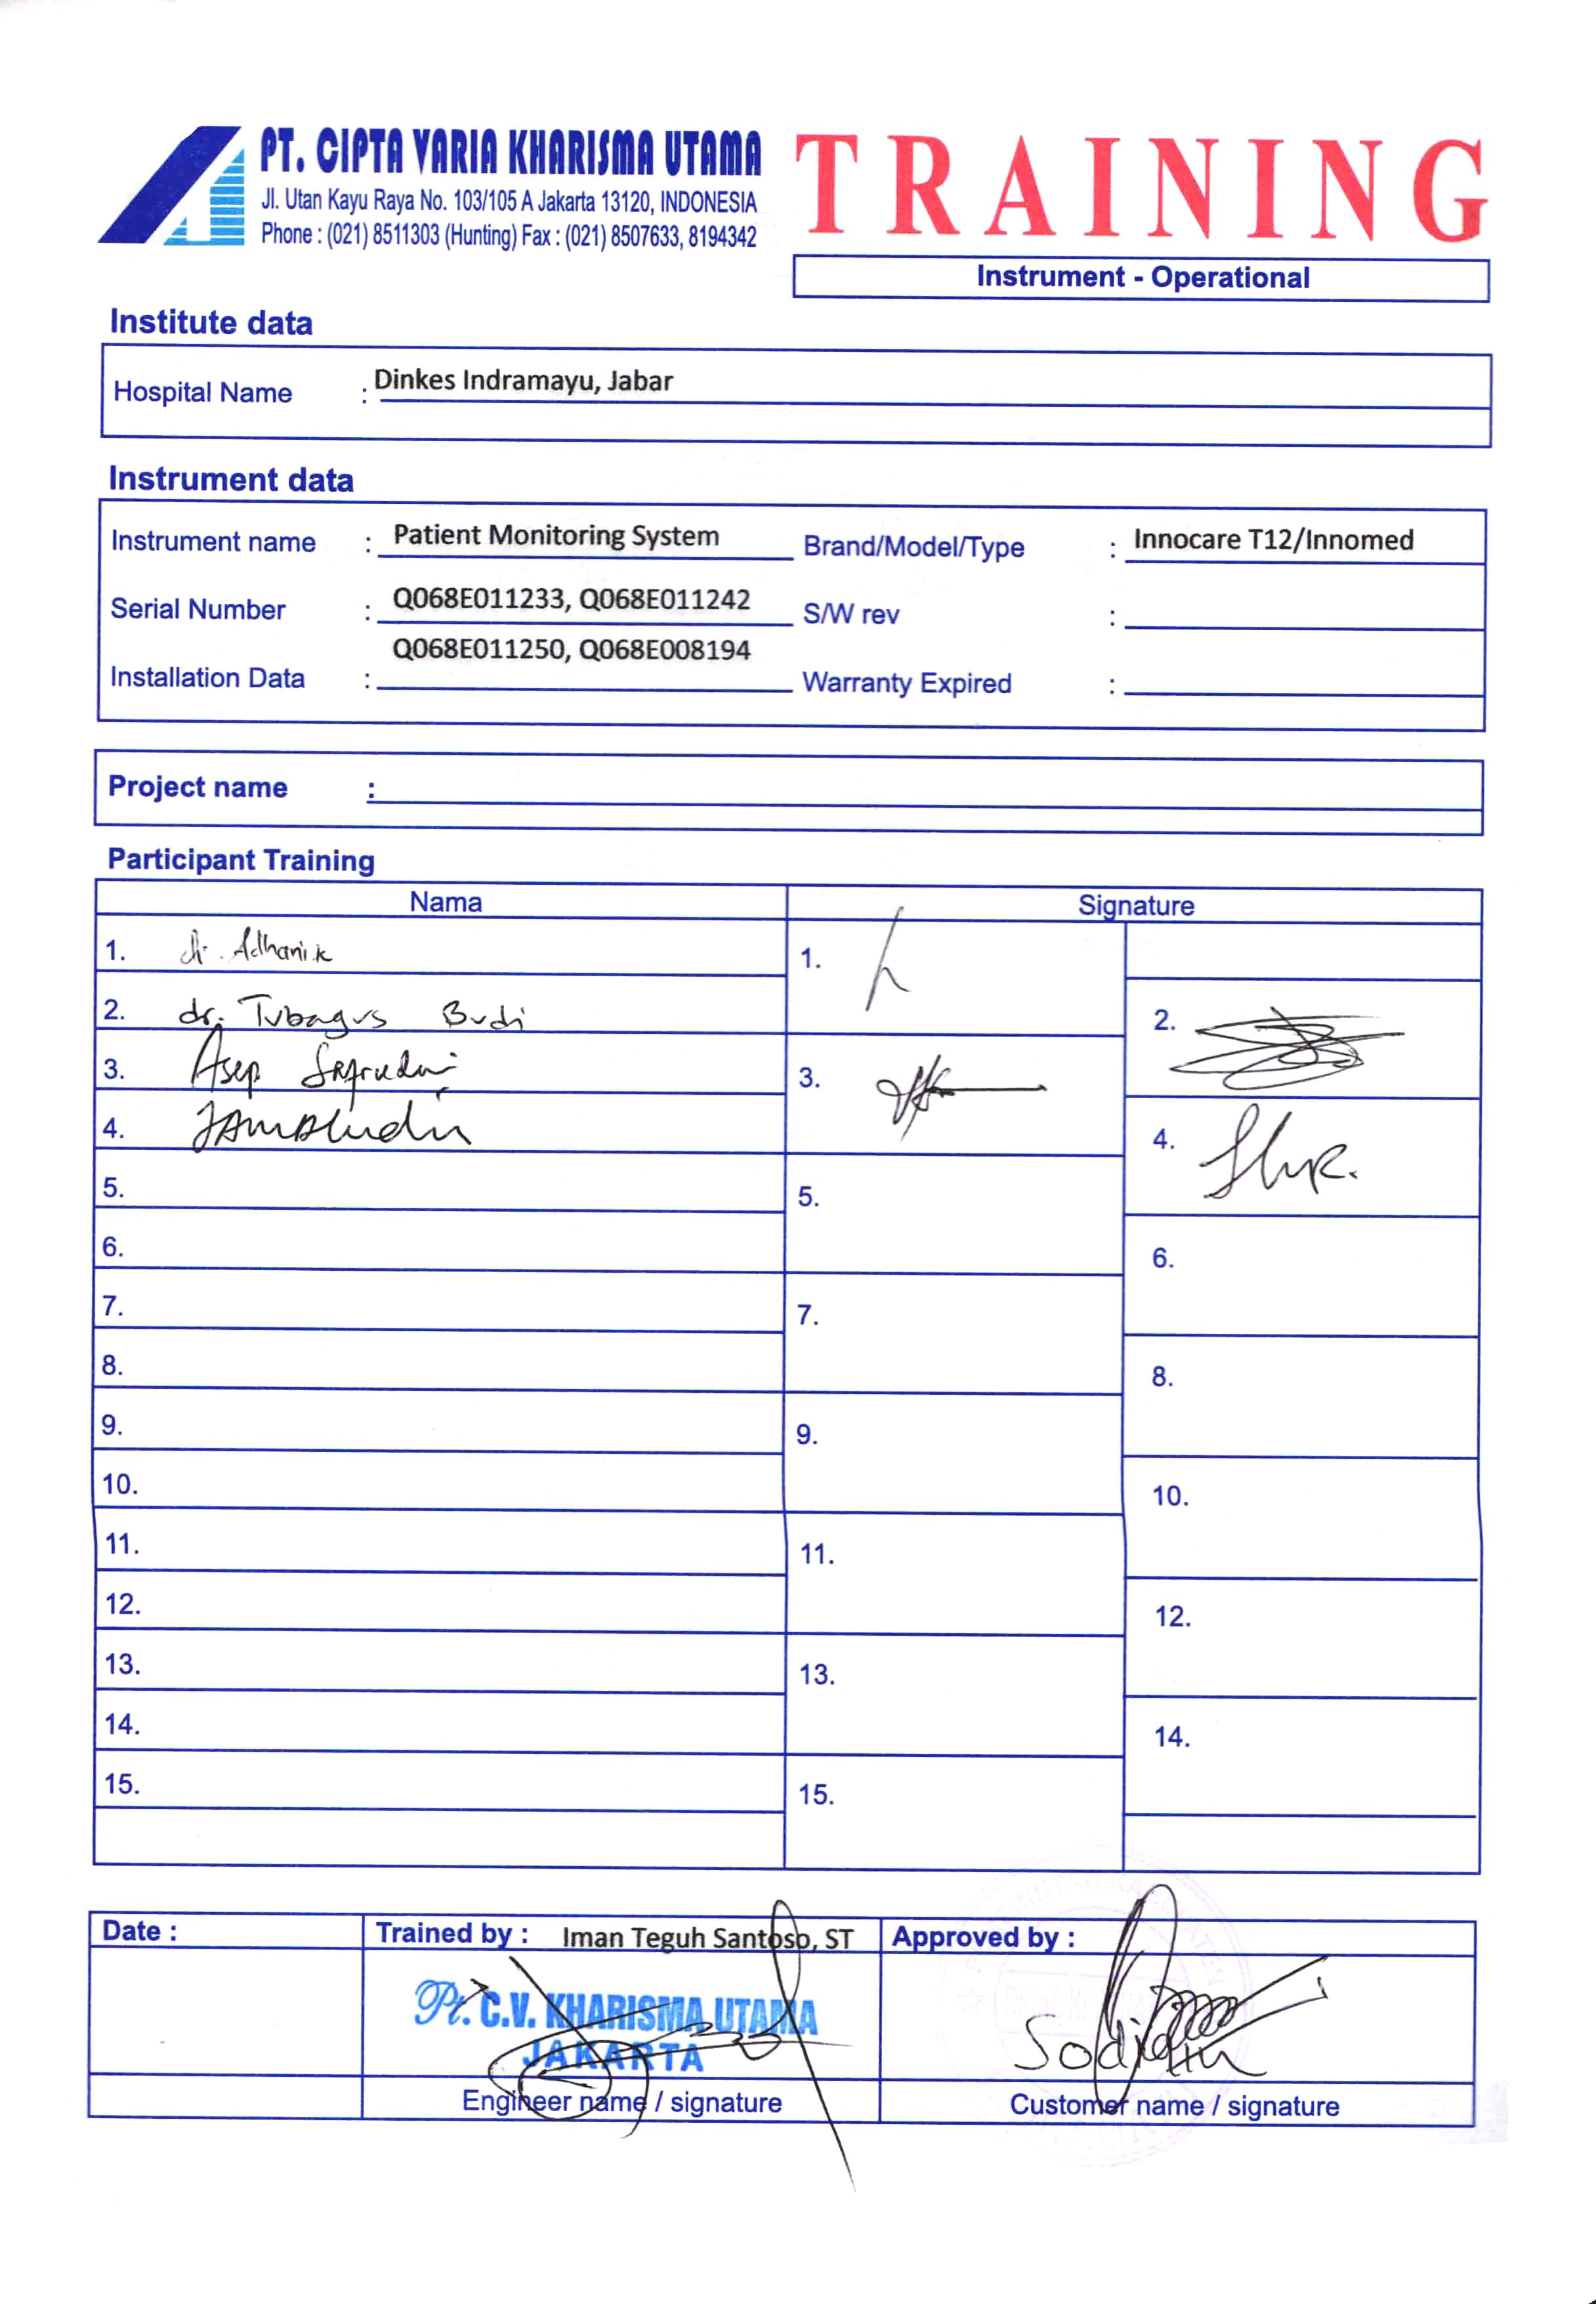 PT. CIPTA VARIA KHARISMA UTAMA
Jl. Utan Kayu Raya No. 103/105 A Jakarta 13120, INDONESIA
Phone : (021) 8511303 (Hunting) Fax : (021) 8507633, 8194342
TRAINING
Instrument - Operational
Institute data
Hospital Name : Dinkes Indramayu, Jabar
Instrument data
Instrument name : Patient Monitoring System Brand/Model/Type : Innocare T12/Innomed
Serial Number : Q068E011233, Q068E011242 S/W rev :
Q068E011250, Q068E008194
Installation Data : Warranty Expired :
Project name :
Participant Training
Nama Signature
1. dr. Adhanik 1.
2. dr. Tubagus Budi 2.
3. Asep 3.
4. JAMALudin 4.
5. 5.
6. 6.
7. 7.
8. 8.
9. 9.
10. 10.
11. 11.
12. 12.
13. 13.
14. 14.
15. 15.
Date : Trained by : Iman Teguh Santoso, ST Approved by :
Pt. C.V. KHARISMA UTAMA
JAKARTA
Engineer name / signature Customer name / signature